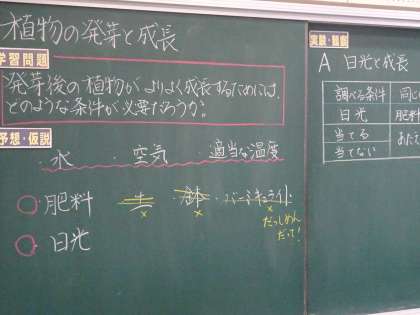 植物の発芽と成長
学習問題
発芽後の植物が よりよく成長するためには、
どのような条件が必要だろうか。
予想・仮説
・水 ・空気 ・適当な温度
肥料 土 ・鉢 ・バーミキュライト
× × ×
だっしめん
だって!
日光
実験・観察
A 日光と成長
調べる条件 同じ
日光 肥料
当てる あたえ
当てない